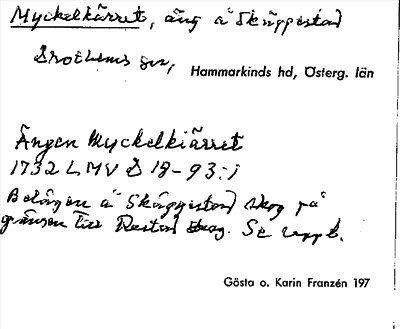 Myckelkärret, äng å Skäggestad
Drothems sn, Hammarkinds hd, Österg. län
Ängen Myckelkiärret
1732 LMV D 18-93:1
Belägen å Skäggestad skog på
gränsen till Restad skog. Se uppt.
Gösta o. Karin Franzén 197